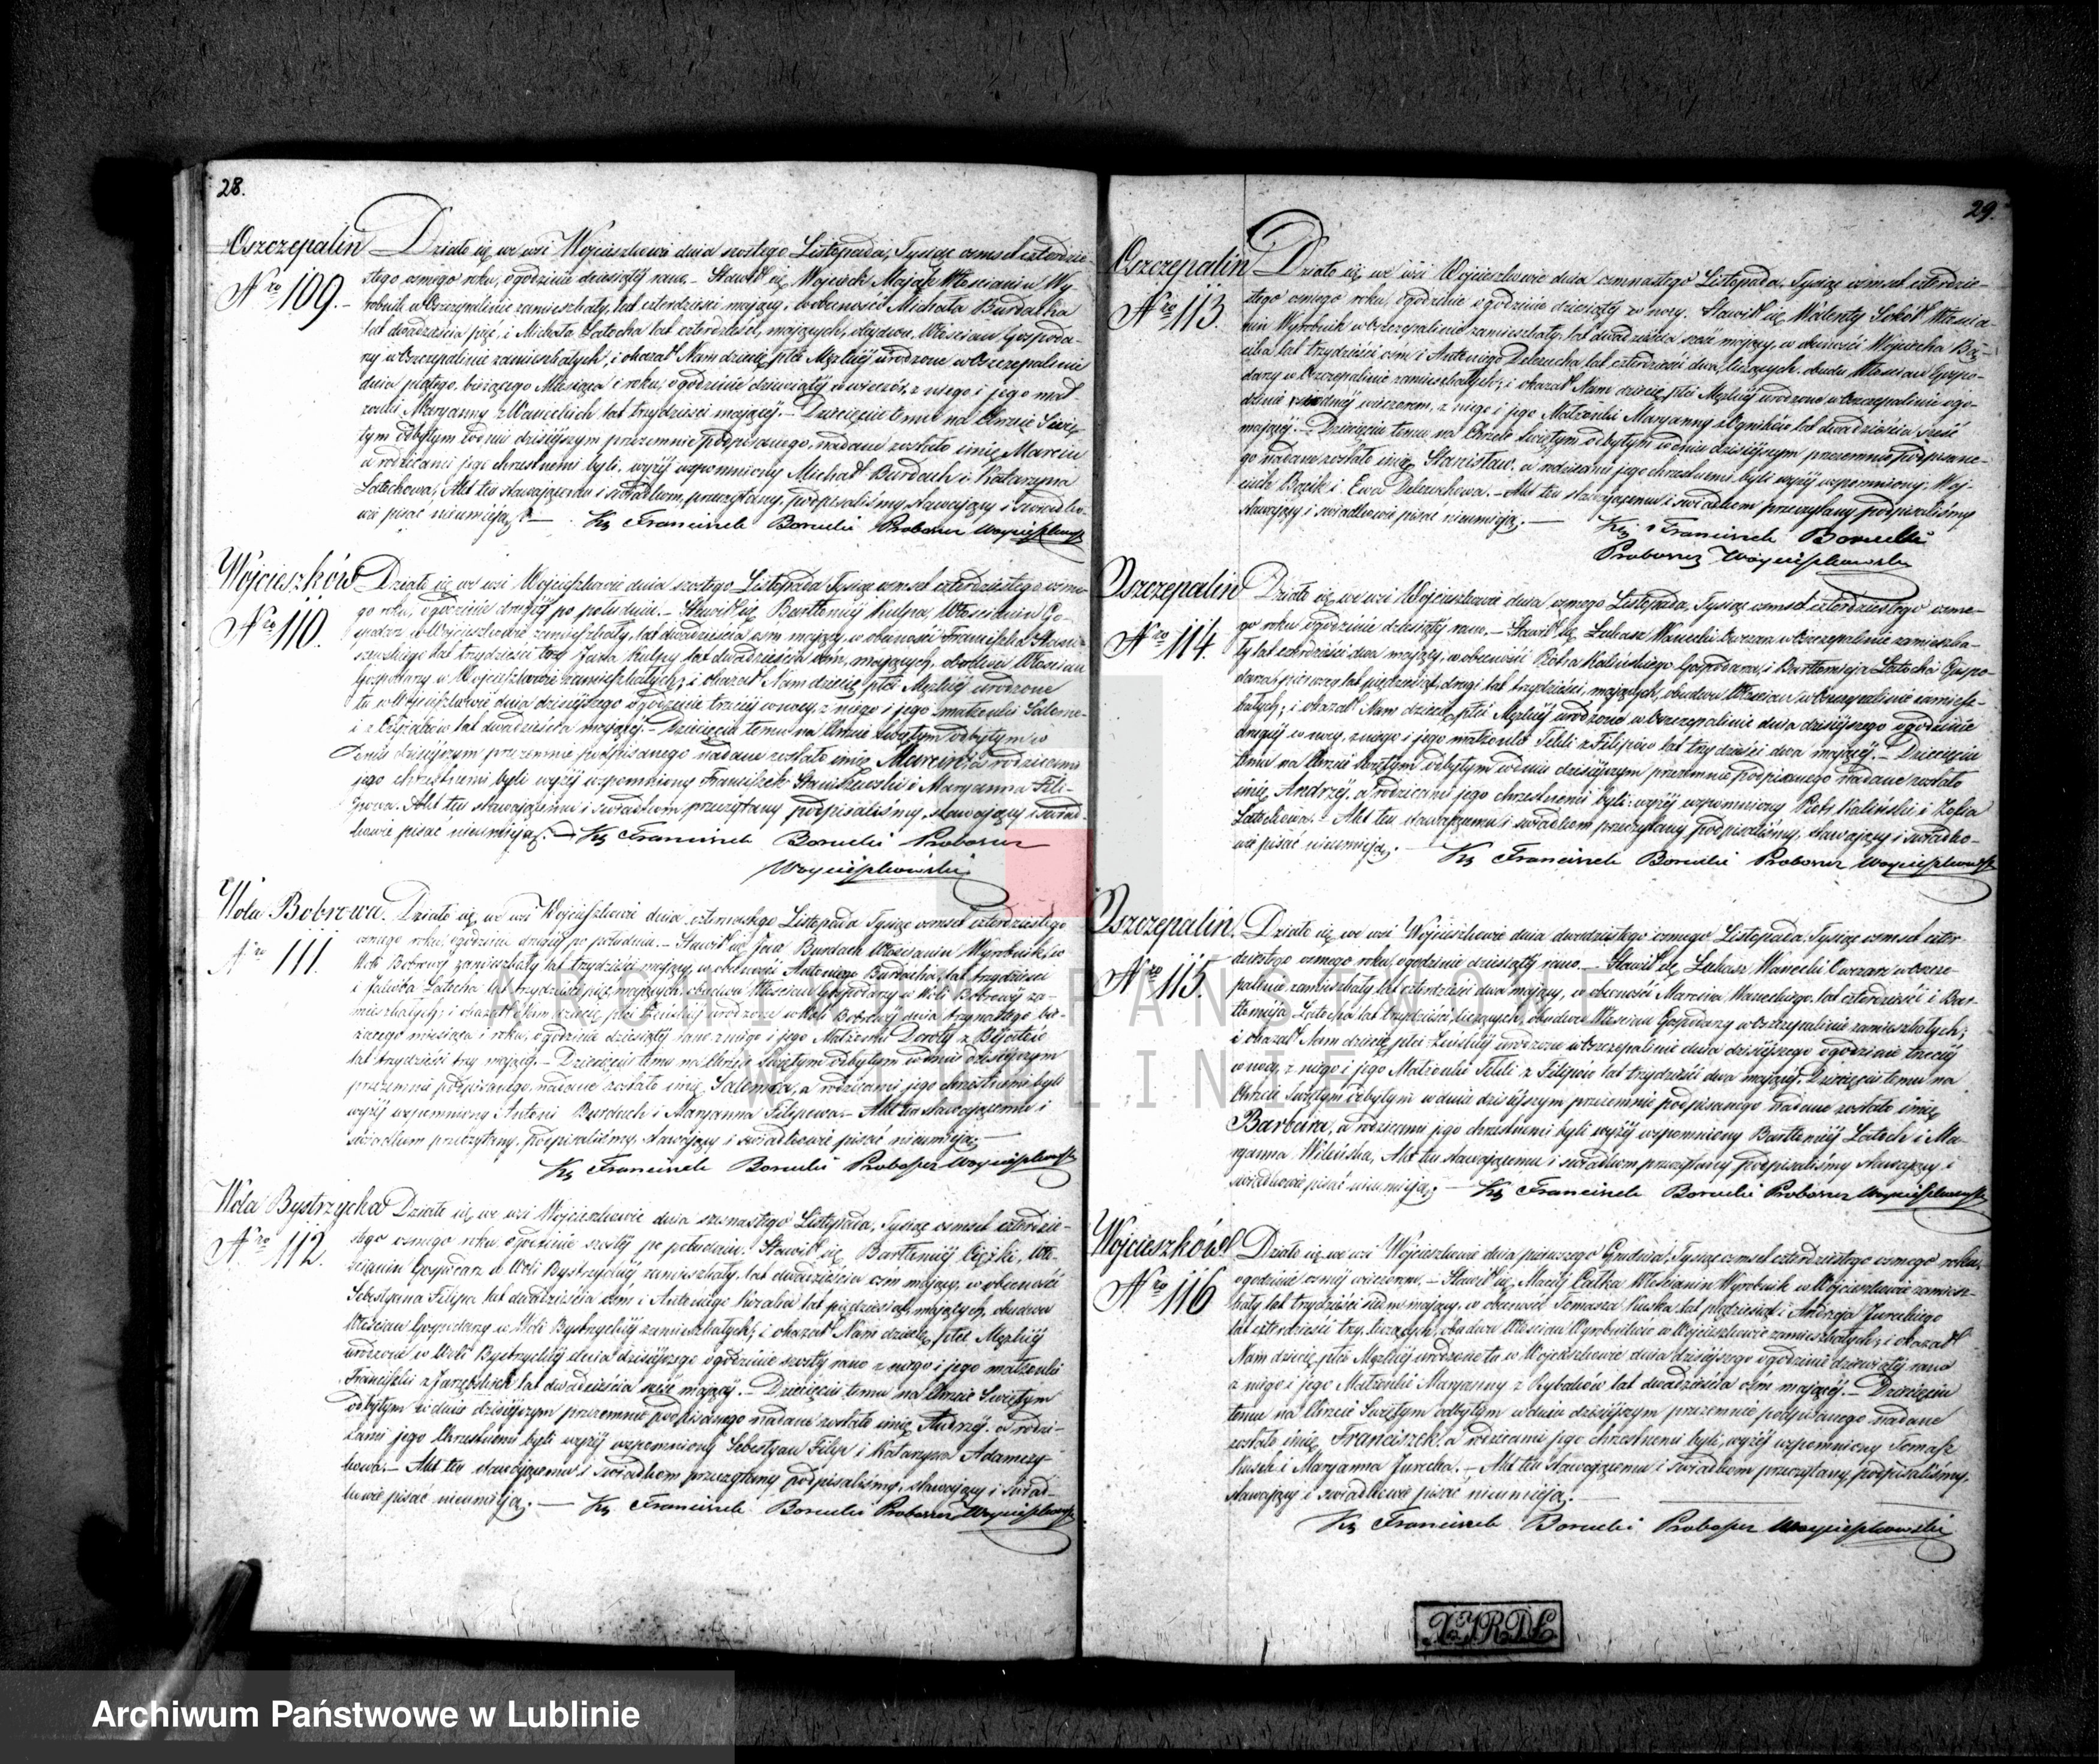 28.
Oszczepalin
Nro 109.
Działo się we wsi Wojcieszkowie dnia szostego Listopada, Tysiąc osmset czterdzie-
stego osmego roku, o godzinie dziesiątej rano. – Stawił się Wojciech Włościanin Wy-
robnik w Oszczepalinie zamieszkały, lat czterdzieści mający, w obecności Michała Burdacha
lat dwadzieścia pięć, i Michała Latocha lat czterdzieści, mających, obydwu Włościan Gospoda-
rzy w Oszczepalinie zamieszkałych, i okazał Nam dziecię płci Męzkiej urodzone w Oszczepalinie
dnia piątego bieżącego Miesiąca i roku, o godzinie dziewiątej wieczór, z niego i jego mał-
żonki Maryanny z Waneckich lat trzydzieści mającej. – Dziecięciu temu na Chrzcie Swię-
tym odbytym w dniu dzisiejszym przezemnie podpisanego, nadane zostało imię Marcin
a rodzicami jego chrzestnemi byli, wyżej wspomniony Michał Burdach i Katarzyna
Latochowa, Akt ten stawającemu i świadkom przeczytany, podpisaliśmy, stawający i świadko-
wie pisać nieumieją. – Xz Franciszek Borucki Proboszcz Wojcieszkowski
Wojcieszków
Nro 110.
Działo się we wsi Wojcieszkowie dnia szostego Listopada Tysiąc osmset czterdziestego osme-
go roku, o godzinie drugiej po południu. – Stawił się Bartłomiej Kulpa, Włościanin Go-
spodarz w Wojcieszkowie zamieszkały, lat dwadzieścia osm mający, w obecności Franciszka Stani-
szewskiego lat trzydzieści trzy Jana Kulpy lat dwadzieścia osm, mających, obudwu Włościan
Gospodarzy w Wojcieszkowie zamieszkałych, i okazał Nam dziecię płci Męzkiej urodzone
tu w Wojcieszkowie dnia dzisiejszego o godzinie trzeciej w nocy, z niego i jego małżonki Salome-
i z lat dwadzieścia mającej. – Dziecięciu temu na Chrzcie Swiętym odbytym w
Dniu dzisiejszym przezemnie podpisanego nadane zostało imię Marcin, a rodzicami
jego chrzestnemi byli wyżej wspomniony Franciszek Staniszewski i Maryanna Fili-
powa. Akt ten stawającemu i świadkom przeczytany podpisaliśmy, stawający i świad-
kowie pisać nieumieją. – Xz Franciszek Borucki Proboszcz
Wojcieszkowski
Wola Bobrowa.
Nro 111.
Działo się we wsi Wojcieszkowie dnia czternastego Listopada Tysiąc osmset czterdziestego
osmego roku, o godzinie drugiej po południu. – Stawił się Jan Burdach Włościanin Wyrobnik, w
Woli Bobrowej zamieszkały lat trzydzieści mający, w obecności Antoniego Burdacha, lat trzydzieści
i Jakóba Latocha lat trzydzieści pięć mających, obudwu Włościan Gospodarzy w Woli Bobrowej za-
mieszkałych; i okazał Nam dziecię płci Żeńskiej urodzone w Woli Bobrowej dnia trzynastego bie-
żącego miesiąca i roku, o godzinie dziesiątej rano z niego i jego Małżonki Doroty z
lat trzydzieści trzy mającej. – Dziecięciu temu na Chrzcie Swiętym odbytym w dniu dzisiejszym
przezemnie podpisanego, nadane zostało imię Salomea, a rodzicami jego chrzestnemi byli
wyżej wspomniony Antoni Burdach i Maryanna Filipowa. – Akt ten stawającemu i
świadkom przeczytany, podpisaliśmy, stawający i świadkowie pisać nieumieją. –
Xz Franciszek Borucki Proboszcz Wojcieszkowski
Wola Bystrzycka
Nro 112.
Działo się we wsi Wojcieszkowie dnia szesnastego Listopada, Tysiąc osmset czterdzie-
stego osmego roku, o godzinie szostej po południu. Stawił się Bartłomiej Cięzki, Wło-
ścianin Gospodarz w Woli Bystrzyckiej zamieszkały, lat dwadzieścia osm mający, w obecności
Sebestyana Filipa lat dwadzieścia osm i Antoniego Kozaka lat pięćdziesiąt mających, obudwu
Włościan Gospodarzy w Woli Bystrzyckiej zamieszkałych; i okazał Nam dziecię płci Męzkiej
urodzone w Woli Bystrzyckiej dnia dzisiejszego o godzinie szostej rano z niego i jego małżonki
Franciszki z Jarzębskich lat dwadzieścia sześć mającej. – Dziecięciu temu na Chrzcie Swiętym
odbytym w dniu dzisiejszym przezemnie podpisanego nadane zostało imię Andrzej, a rodzi-
cami jego Chrzestnemi byli wyżej wspomniony Sebestyan Filip i Katarzyna Adamczy-
kowa. – Akt ten stawającemu i świadkom przeczytany podpisaliśmy, stawający i świad-
kowie pisać nieumieją. – Xz Franciszek Borucki Proboszcz Wojcieszkowski
29.
Oszczepalin
Nro 113.
Działo się we wsi Wojcieszkowie dnia osmnastego Listopada, Tysiąc osmset czterdzie-
stego osmego roku, o godzinie o godzinie dziesiątej w nocy. Stawił się Walenty Sokoł Włościa-
nin Wyrobnik w Oszczepalinie zamieszkały, lat dwadzieścia sześć mający, w obecności Wojciecha Bą-
cika lat trzydzieści osm i Antoniego Delezucha lat czterdzieści dwa, liczących, obudwu Włościan Gospo-
darzy w Oszczepalinie zamieszkałych; i okazał Nam dziecię płci Męzkiej urodzone w Oszczepalinie o go-
dzinie wieczorem, z niego i jego Małżonki Maryanny z Ogników lat dwadzieścia sześć
mającej. – Dziecięciu temu na Chrzcie Swiętym odbytym w dniu dzisiejszym przezemnie podpisane-
go nadane zostało imię Stanisław, a rodzicami jego chrzestnemi byli wyżej wspomniony Woj-
ciech Bącik i Ewa Delezuchowa. – Akt ten stawającemu i świadkom przeczytany podpisaliśmy,
stawający i świadkowie pisać nieumieją. – Xz Franciszek Borucki
Proboszcz Wojcieszkowski
Oszczepalin
Nro 114.
Działo się we wsi Wojcieszkowie dnia osmego Listopada, Tysiąc osmset czterdziestego osme-
go roku o godzinie dziesiątej rano. – Stawił się Łukasz Wanecki Owczarz w Oszczepalinie zamieszka-
ły lat czterdzieści dwa mający, w obecności Piotra Kalińskiego Gospodarza, i Bartłomieja Latocha Gospo-
darza pierwszy lat pięćdziesiąt, drugi lat trzydzieści, mających, obudwu Włościan w Oszczepalinie zamiesz-
kałych; i okazał Nam dziecię płci Męzkiej urodzone w Oszczepalinie dnia dzisiejszego o godzinie
drugiej w nocy, z niego i jego małżonki Tekli z Filipów lat trzydzieści dwa mającej. – Dziecięciu
temu na Chrzcie Swiętym odbytym w dniu dzisiejszym przezemnie podpisanego nadane zostało
imię Andrzej, a rodzicami jego chrzestnemi byli: wyżej wspomniony Piotr Kaliński i Zofia
Latochowa. – Akt ten stawającemu i świadkom przeczytany podpisaliśmy, stawający i świadko-
wie pisać nieumieją. – Xz Franciszek Borucki Proboszcz Wojcieszkowski
Oszczepalin.
Nro 115.
Działo się we wsi Wojcieszkowie dnia dwudziestego osmego Listopada, Tysiąc osmset czter-
dziestego osmego roku, o godzinie dziesiątej rano. – Stawił się Łukasz Wanecki Owczarz w Oszcze-
palinie zamieszkały lat czterdzieści dwa mający, w obecności Marcina Waneckiego lat czterdzieści i Bar-
tłomieja Latocha lat trzydzieści, liczących, obudwu Włościan Gospodarzy w Oszczepalinie zamieszkałych;
i okazał Nam dziecię płci Żeńskiej urodzone w Oszczepalinie dnia dzisiejszego o godzinie trzeciej
w nocy, z niego i jego Małżonki Tekli z Filipów lat trzydzieści dwa mającej. Dziecięciu temu na
Chrzcie Swiętym odbytym w dniu dzisiejszym przezemnie podpisanego nadane zostało imię
Barbara, a rodzicami jego chrzestnemi byli wyżej wspomniony Bartłomiej Latoch i Ma-
ryanna Wilińska, Akt ten stawającemu i świadkom przeczytany podpisaliśmy stawający i
świadkowie pisać nieumieją. – Xz Franciszek Borucki Proboszcz Wojcieszkowski
Wojcieszków
Nro 116
Działo się we wsi Wojcieszkowie dnia pierwszego Grudnia, Tysiąc osmset czterdziestego osmego roku,
o godzinie osmej wieczorem. – Stawił się Maciej Całka Włościanin Wyrobnik w Wojcieszkowie zamiesz-
kały lat trzydzieści siedm mający, w obecności Tomasza Kuska lat pięćdziesiąt i Andrzeja Jureckiego
lat czterdzieści trzy, liczących, obudwu Włościan Wyrobników w Wojcieszkowie zamieszkałych; i okazał
Nam dziecię płci Męzkiej urodzone tu w Wojcieszkowie dnia dzisiejszego o godzinie dziewiątej rano
z niego i jego Małżonki Maryanny z Rybaków lat dwadzieścia osm mającej. – Dziecięciu
temu na Chrzcie Swiętym odbytym w dniu dzisiejszym przezemnie podpisanego nadane
zostało imię Franciszek, a rodzicami jego chrzestnemi byli, wyżej wspomniony Tomasz
Kusek i Maryanna Jurecka. – Akt ten stawającemu i świadkom przeczytany, podpisaliśmy,
stawający i świadkowie pisać nieumieją. –
Xz Franciszek Borucki Proboszcz Wojcieszkowski
ARCHIWUM PAŃSTWOWE
W LUBLINIE
Archiwum Państwowe w Lublinie